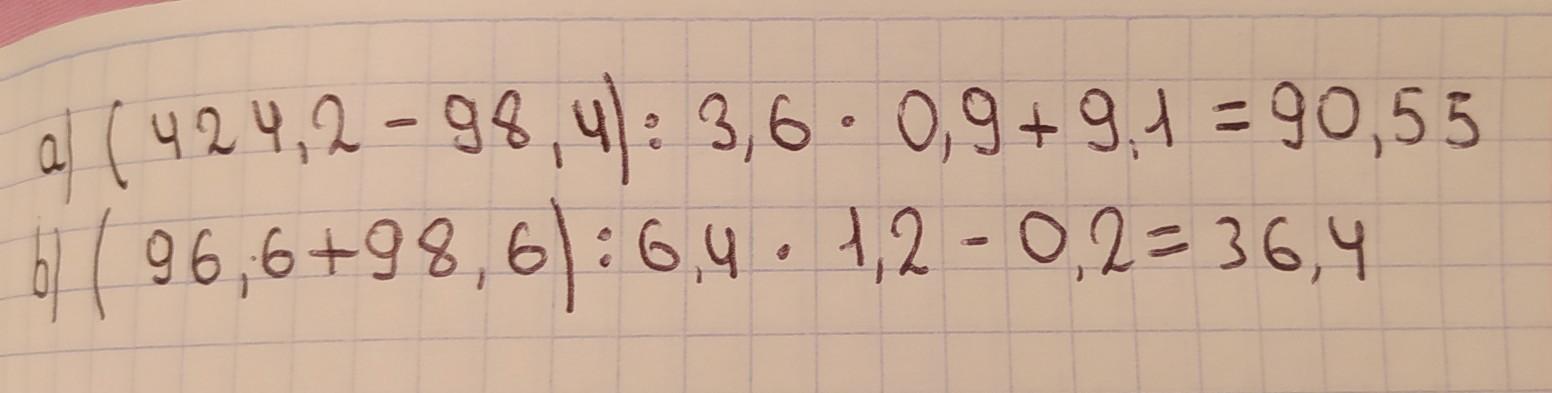 a) (424,2-98,4):3,6·0,9+9,1=90,55
b) (96,6+98,6):6,4·1,2-0,2=36,4